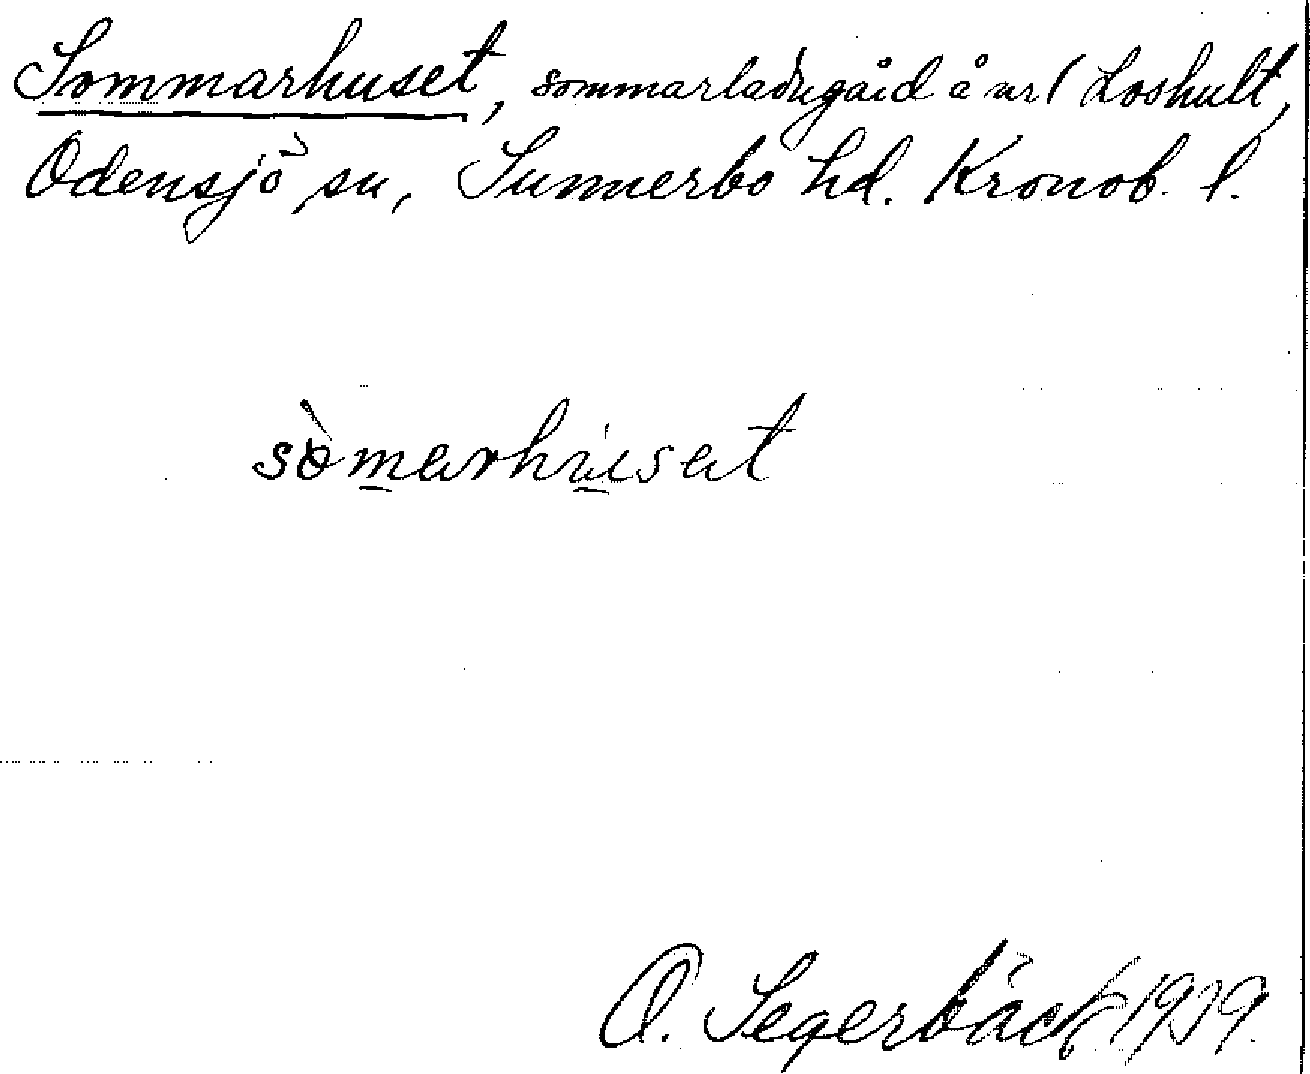 Sommarhuset, sommarladugård å nr 1 Loshult,
Odensjö sn, Sunnerbo hd. Kronob. l.
sòmarhu̱sət
O. Segerbäck 1939.